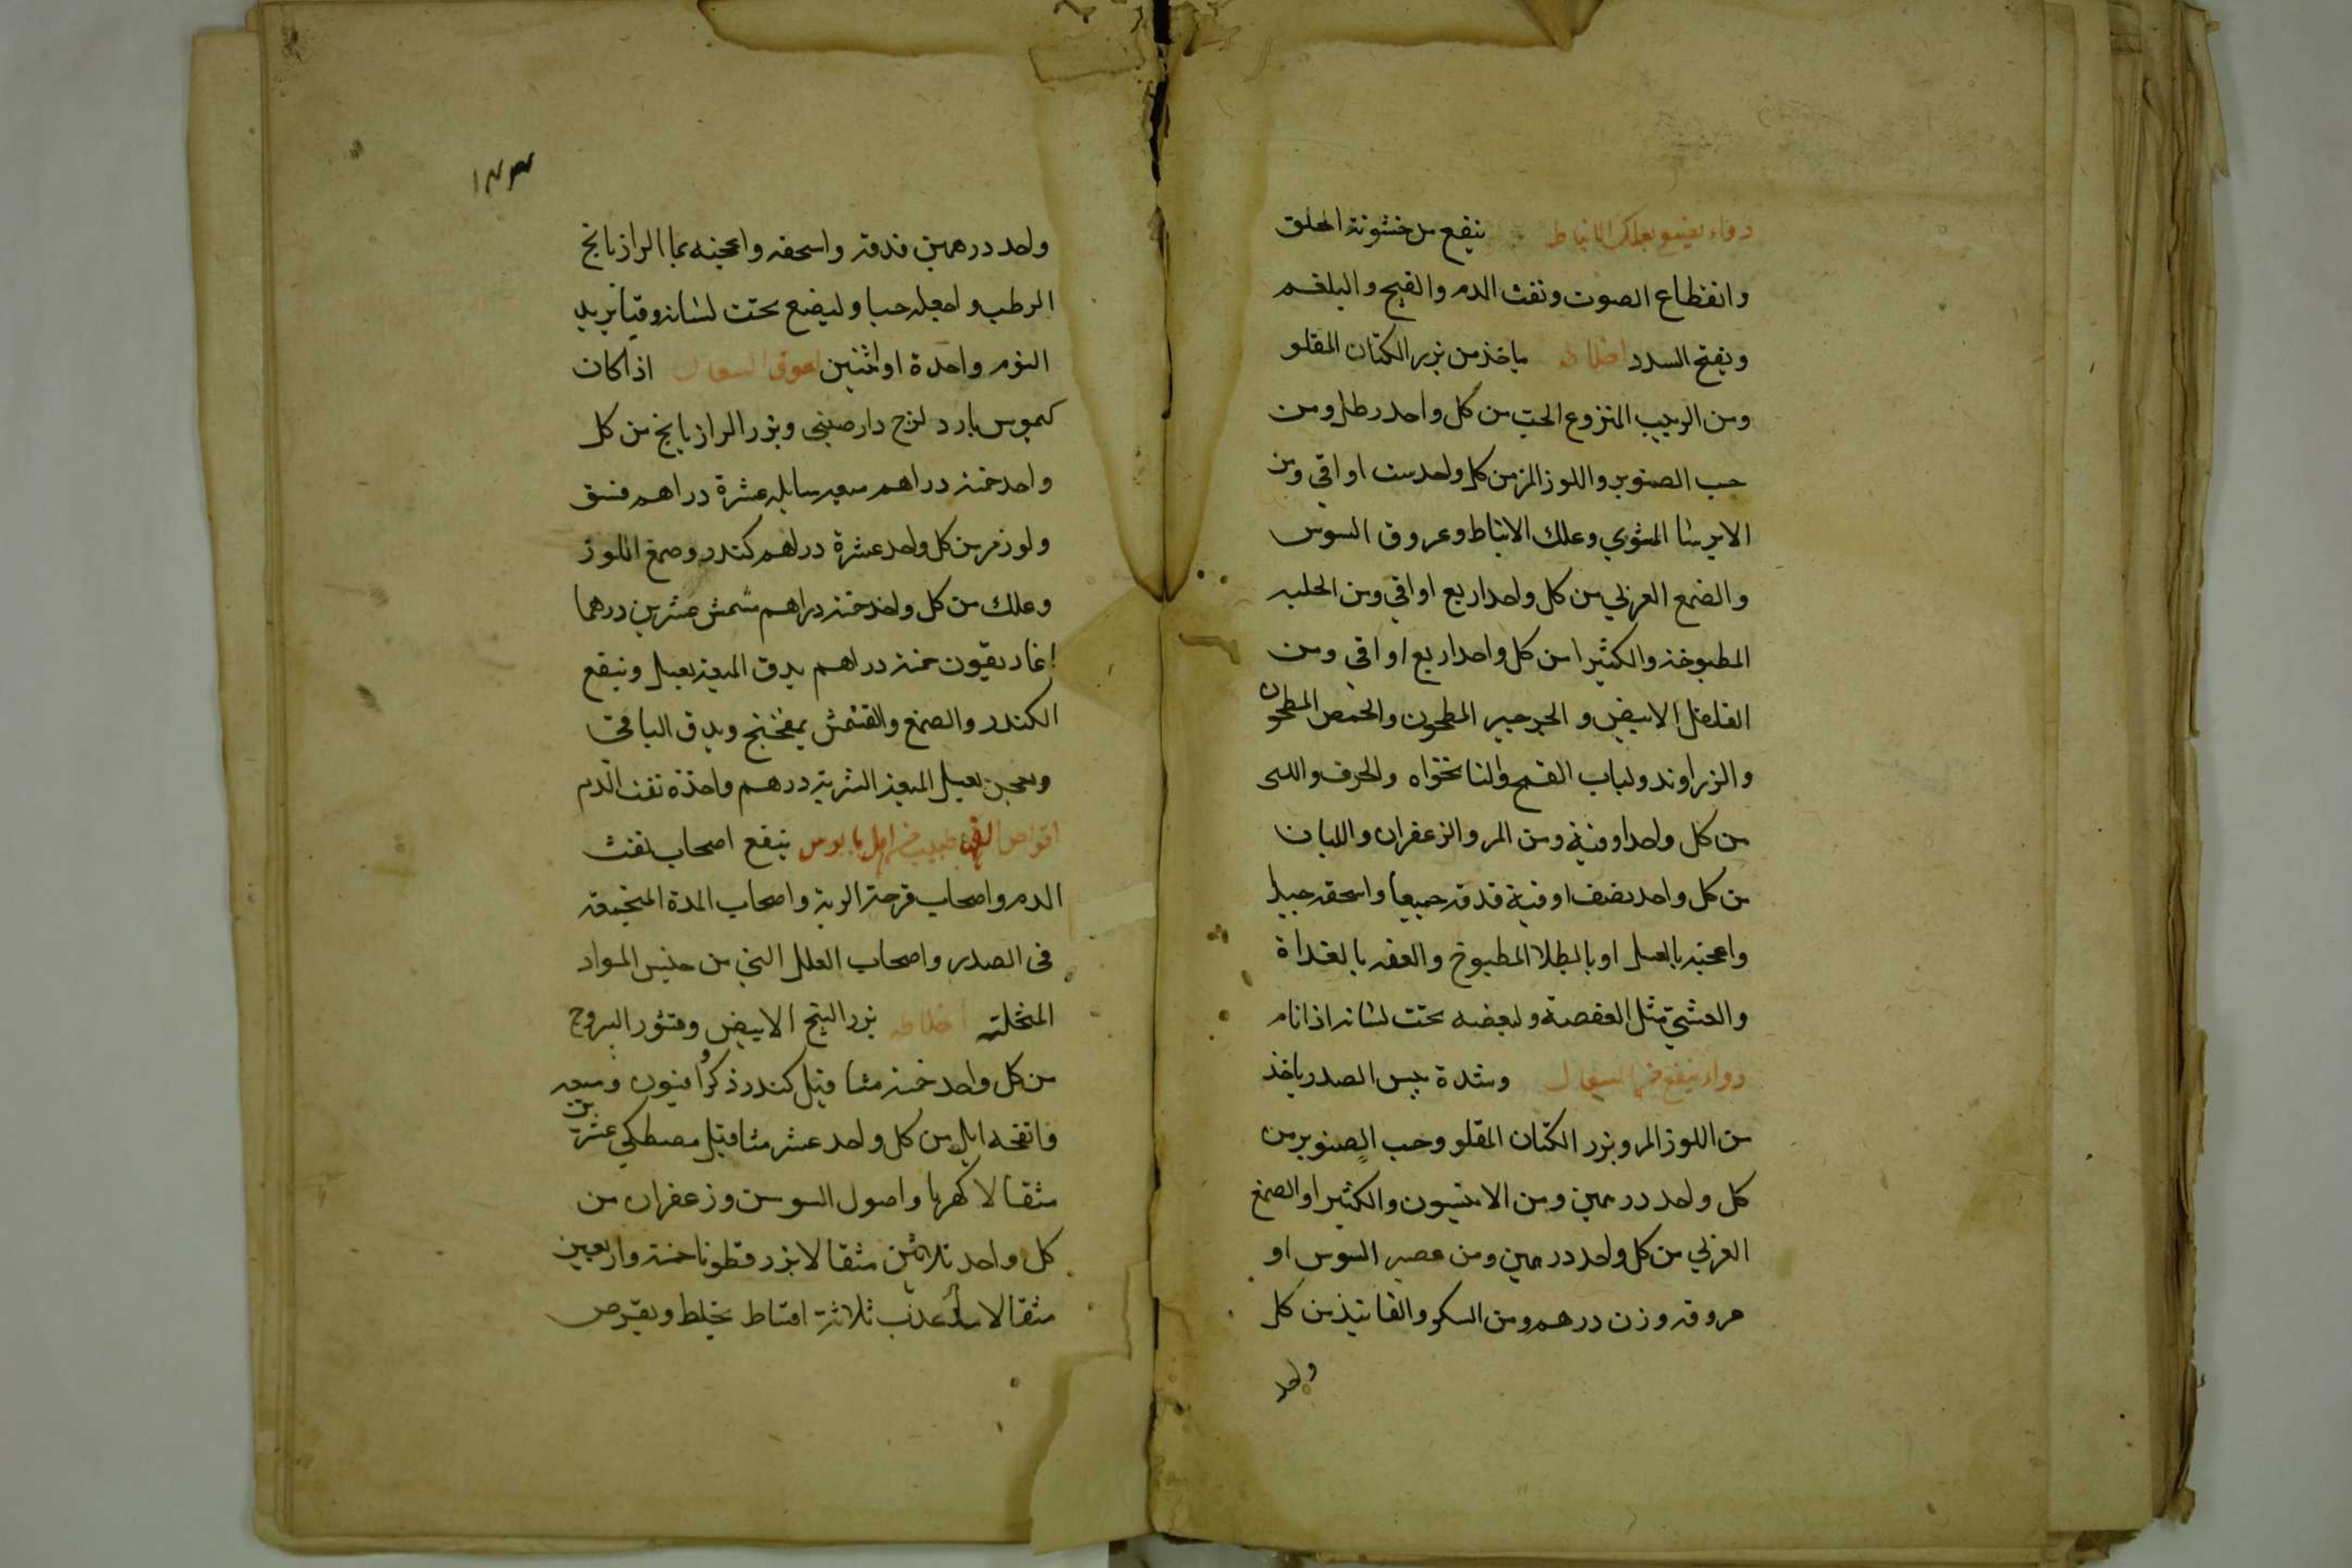 ينفع من خشونة الحلق
وانقطاع الصوت ونفث الدم والقيح والبلغم
ويفتح السدد اخلاطه ياخذ من بزر الكتان المقلو
ومن الزبيب المنزوع الحب من كل واحد رطل ومن
حب الصنوبر واللوز المر من كل واحد ست اواقي ومن
الايرسا المشوي وعلك الانباط وعروق السوس
والصمغ العربي من كل واحد اربع اواقي ومن الحلبه
المطبوخة والكثيرا من كل واحد اربع اواقي ومن
الفلفل الابيض و الجرجير المطحون والحمص المطحون
والزراوند ولباب القمح والنانخواه والحرف
من كل واحد اوقية ومن المر والزعفران واللبان
من كل واحد نصف اوقية فدقه جميعا واسحقه جيدا
واعجنه بالعسل او بالطلا المطبوخ والعقه بالغداة
والعشي مثل العفصة وليضعه تحت لسانه اذا نام
دواء ينفع من السعال وشدة يبس الصدر ياخذ
من اللوز المر وبزر الكتان المقلو وحب الصنوبر من
كل واحد درهمين ومن الانيسون والكثيرا والصمغ
العربي من كل واحد درهمين ومن عصير السوس او
عروقه وزن درهم ومن السكر والفانيذ من كل
واحد
١٤٣
واحد درهمين فدقه واسحقه واعجنه بما الرازيانج
الرطب واجعله حبا وليضع تحت لسانه وقتا يريد
النوم واحدة او اثنين لعوق السعال اذا كان
كيموس بارد لزج دارصيني وبزر الرازيانج من كل
واحد خمسة دراهم ميعه سايله عشرة دراهم فستق
ولوز مر من كل واحد عشرة دراهم كندر وصمغ اللوز
وعلك من كل واحد خمسة دراهم مشمش عشرين درهما
اغاريقون خمسة دراهم يدق الميعة بعسل وينقع
الكندر والصمغ والقشمش بميفختج ويدق الباقي
ويعجن بعسل الميعة الشربة درهم واحدة نفث الدم
اقراص ينفع اصحاب نفث
الدم واصحاب قرحة الرية واصحاب المدة المختنقة
في الصدر واصحاب العلل التي من جنس المواد
المتحلبة اخلاطه بزر البنج الابيض وقشور اليبروح
من كل واحد خمسة مثاقيل كندر ذكر وافيون وميعه
وانفحه ايل من كل واحد عشر مثاقيل مصطكي عشرين
مثقالا كهربا واصول السوسن وزعفران من
كل واحد ثلاثين مثقالا بزر قطونا خمسة واربعين
مثقالا ماء عذب ثلاثة اقساط يخلط ويقرص